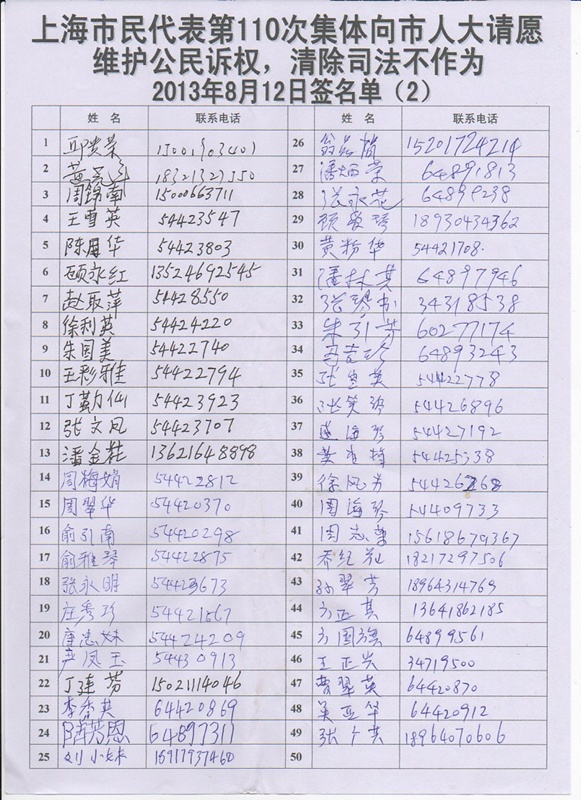 上海市民代表第110次集体向市人大请愿
维护公民诉权，清除司法不作为
2013年8月12日签名单（2）
姓 名 联系电话
1
2 18321321350
3 周锦南 15000663711
4 王雪英 54423547
5 陈国华 54423803
6 顾永红 13524692545
7 赵取萍 54428550
8 徐利英 54424220
9 朱国美 54422740
10 王彩雅 54422794
11 丁勤仙 54423923
12 张文凤 54423707
13 潘金娣 13621648898
14 周梅娟 54422812
15 周翠华 54420370
16 俞引南 54420298
17 俞雅琴 54422875
18 张永明 54423673
19 庄秀珍 54421567
20 唐忠妹 54424209
21 严凤玉 54430913
22 丁连芳 15021114046
23 李香其 64420869
24 陆芳恩 64897311
25 刘小妹 15917937460
姓 名 联系电话
26 15201724214
27 64891813
28 张永花 64899238
29 顾爱琴 18930434362
30 黄粉华 54421708.
31 潘林其 64897946
32 34318538
33 朱引芳 60277174
34 64893243
35 54422778
36 张笑珍 54426896
37 54427192
38 54425338
39 徐凤芳 54426268
40 周海琴 54409733
41 周志荣 15618679367
42 乔纪 18217297506
43 孙翠芳 18964314769
44 方正其 13641862185
45 方国旗 64899561
46 王正兴 34719500
47 曹翠英 64420870
48 吴亚华 64420912
49 18964070606
50